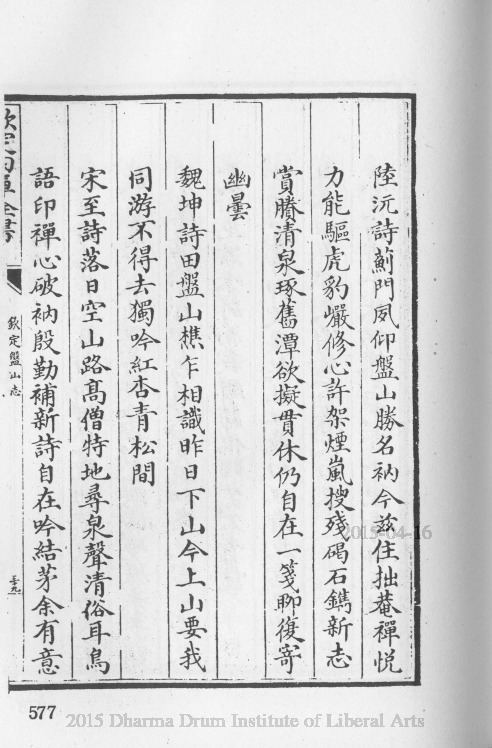 陸沅詩薊門夙仰盤山勝名衲今兹住拙菴禪悦
力能驅虎豹巖修心許架煙嵐搜殘碣石鐫新志
賞賸清泉琢舊潭欲擬貫休仍自在一箋聊復寄
幽曇
魏坤詩田盤山樵乍相識昨日下山今上山要我
同游不得去獨吟紅杏青松間
宋至詩落日空山路髙僧特地尋泉聲清俗耳鳥
語印禪心破衲殷勤補新詩自在吟結茅余有意
欽定四庫全書
欽定盤山志
577
2015-04-16
2015 Dharma Drum Institute of Liberal Arts